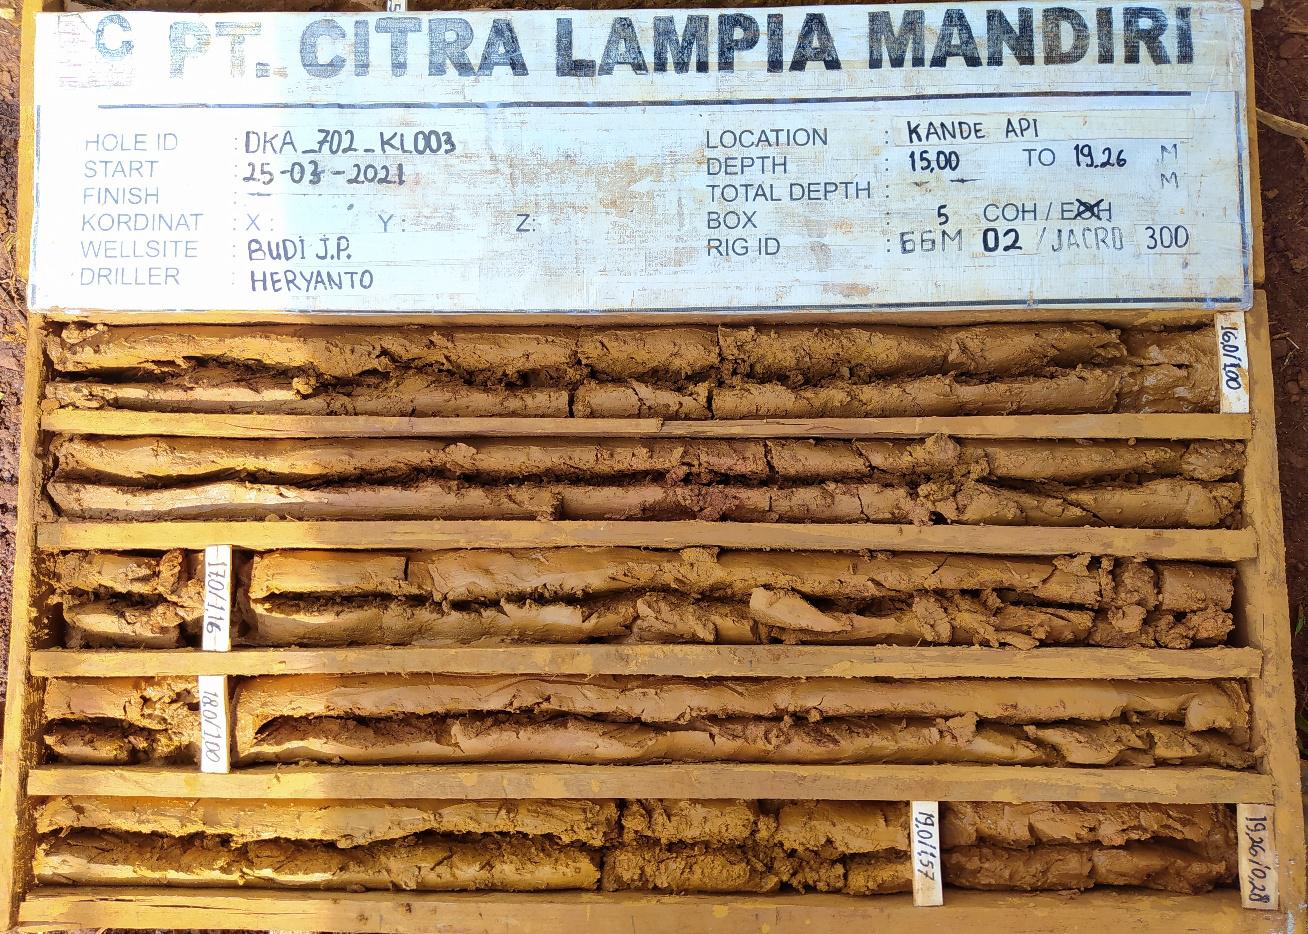 C PT. CITRA LAMPIA MANDIRI
HOLE ID : DKA_702_KL003
START : 25-03-2021
FINISH :
KORDINAT : X : Y : Z:
WELLSITE : BUDI J.P.
DRILLER : HERYANTO
LOCATION : KANDE API
DEPTH : 15,00 TO 19.26 M
TOTAL DEPTH : M
BOX : 5 COH / EOH
RIG ID : GGM 02 / JACRO 300
16.0/1.00
17.0/1.16
18.0/1.00
19.0/1.57
19.26/0.28